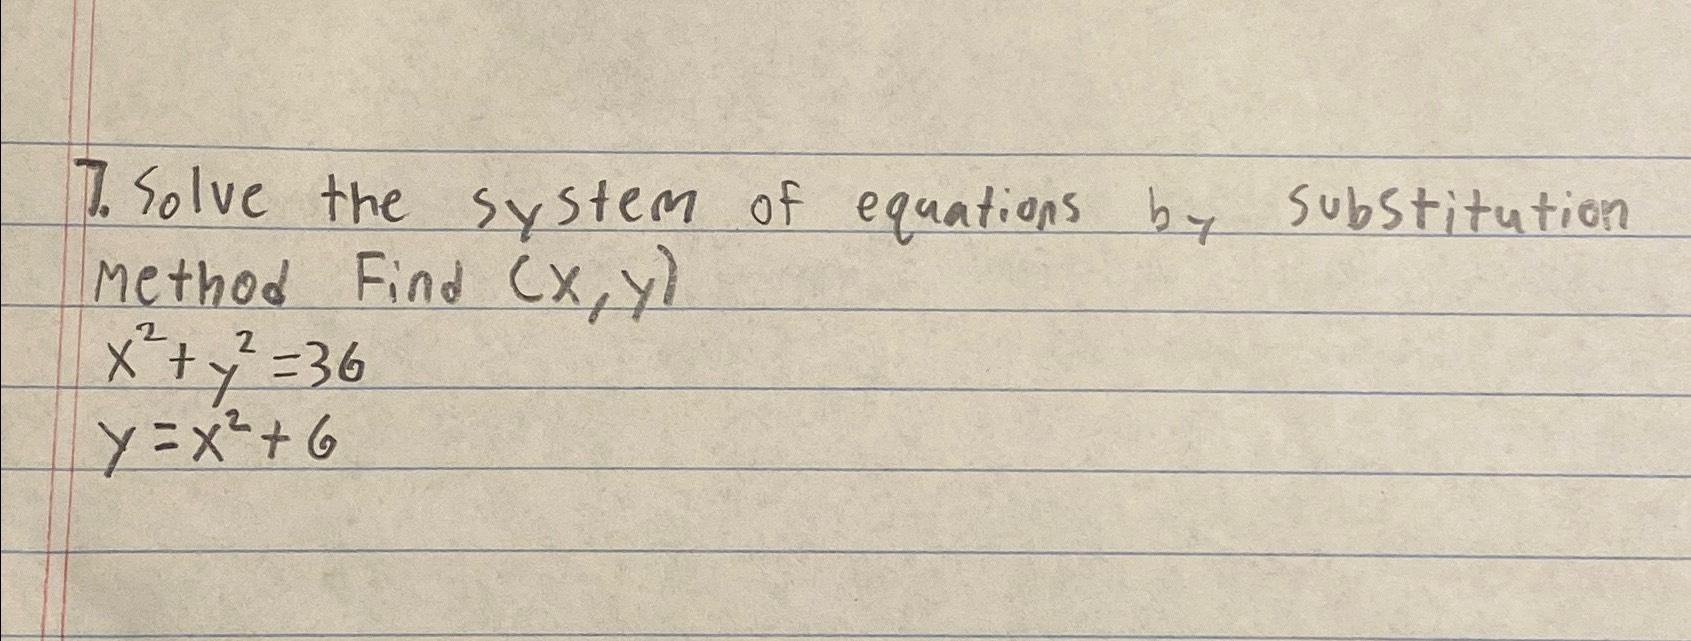 7. Solve the system of equations by substitution
Method Find (x,y)
x²+y²=36
y=x²+6